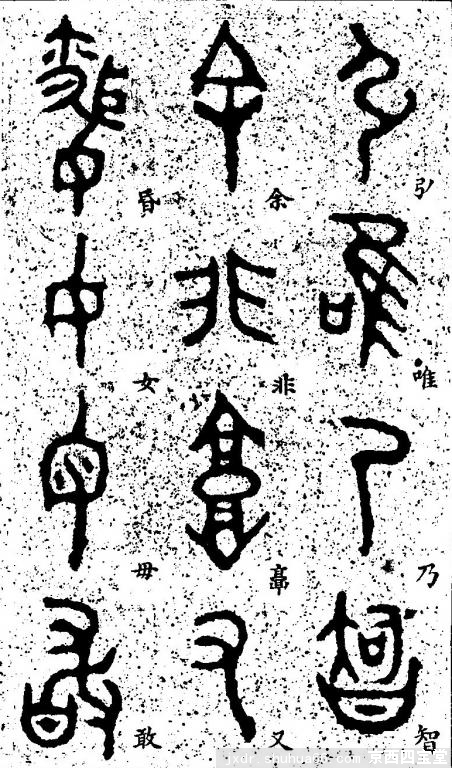 引唯乃智
余非又
昏女毋敢
京西四宝堂